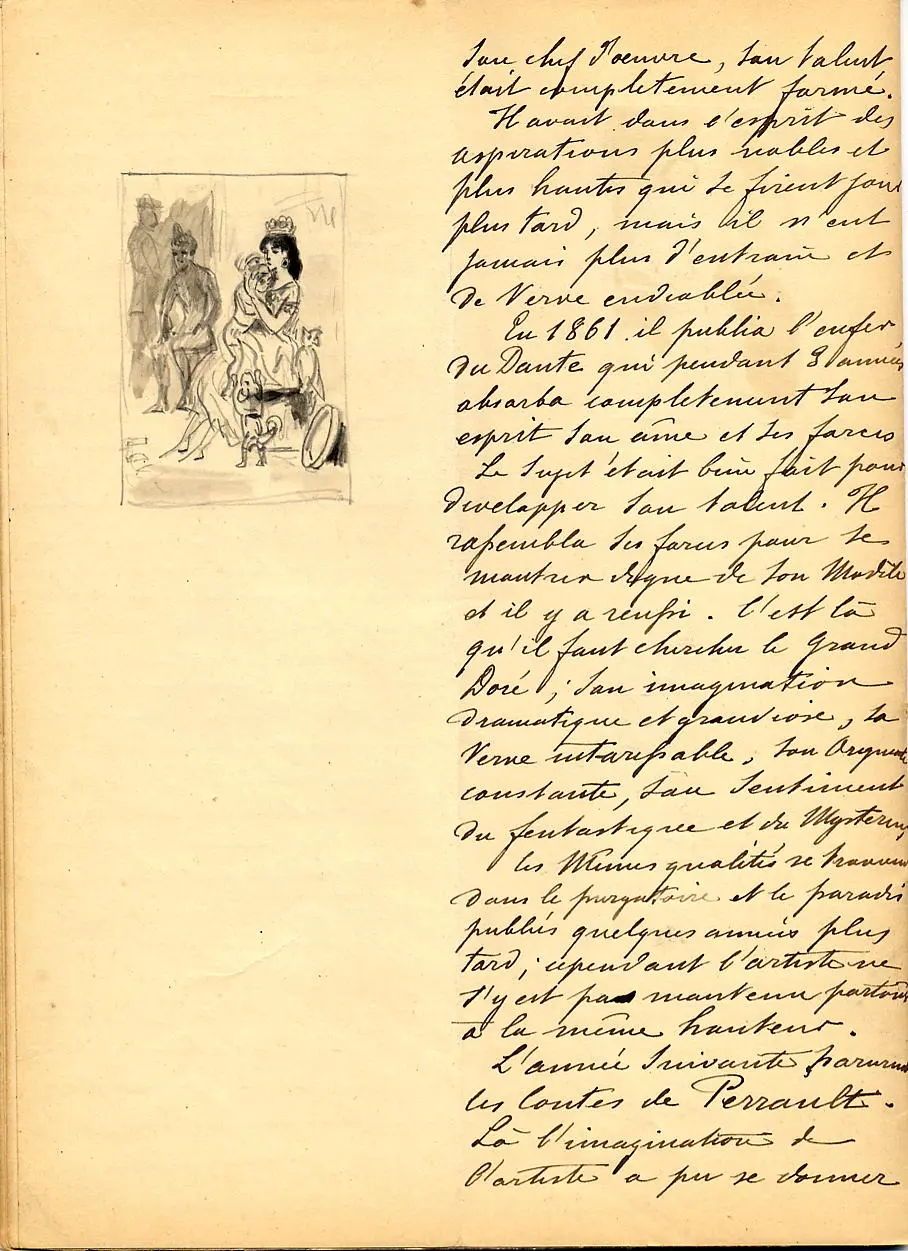 son chef d'oeuvre, son talent
était completement formé.
Il avait dans l'esprit des
aspirations plus nobles et
plus hautes qui se firent jour
plus tard, mais il n'eut
jamais plus d'entrain et
de Verve endiablée.
En 1861 il publia l'enfer
du Dante qui pendant 3 années
absorba completement son
esprit son âme et ses forces
Le sujet était bien fait pour
developper son talent. Il
rassembla ses forces pour se
montrer digne de son Modèle
et il y a reussi. C'est là
qu'il faut chercher le Grand
Doré ; son imagination
dramatique et grandiose, sa
Verve intarissable, son
constante, son sentiment
du fantastique et du
les Mêmes qualités se trouvent
dans le purgatoire et le paradis
publiés quelques années plus
tard ; cependant l'artiste ne
s'y est pas maintenu partout
à la même hauteur.
L'année suivante parurent
les Contes de Perrault.
Là l'imagination de
l'artiste a pu se donner